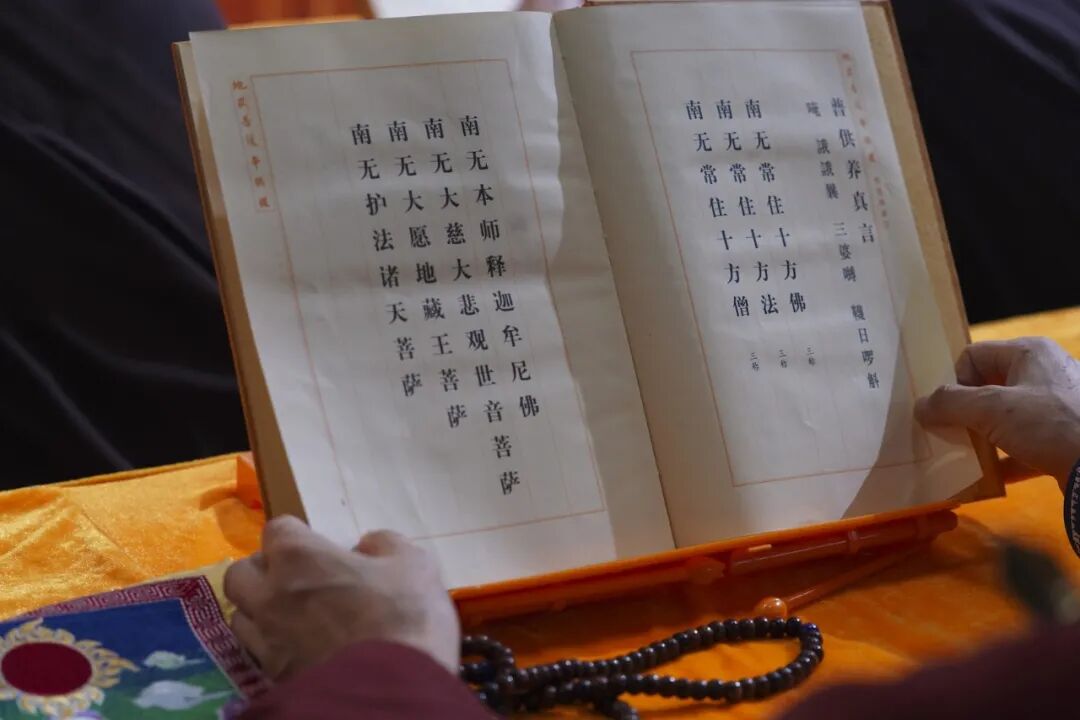 普供养真言
唵 誐誐曩 三婆嚩 韈日啰斛
南无常住十方佛 三称
南无常住十方法 三称
南无常住十方僧 三称
南无本师释迦牟尼佛
南无大慈大悲观世音菩萨
南无大愿地藏王菩萨
南无护法诸天菩萨